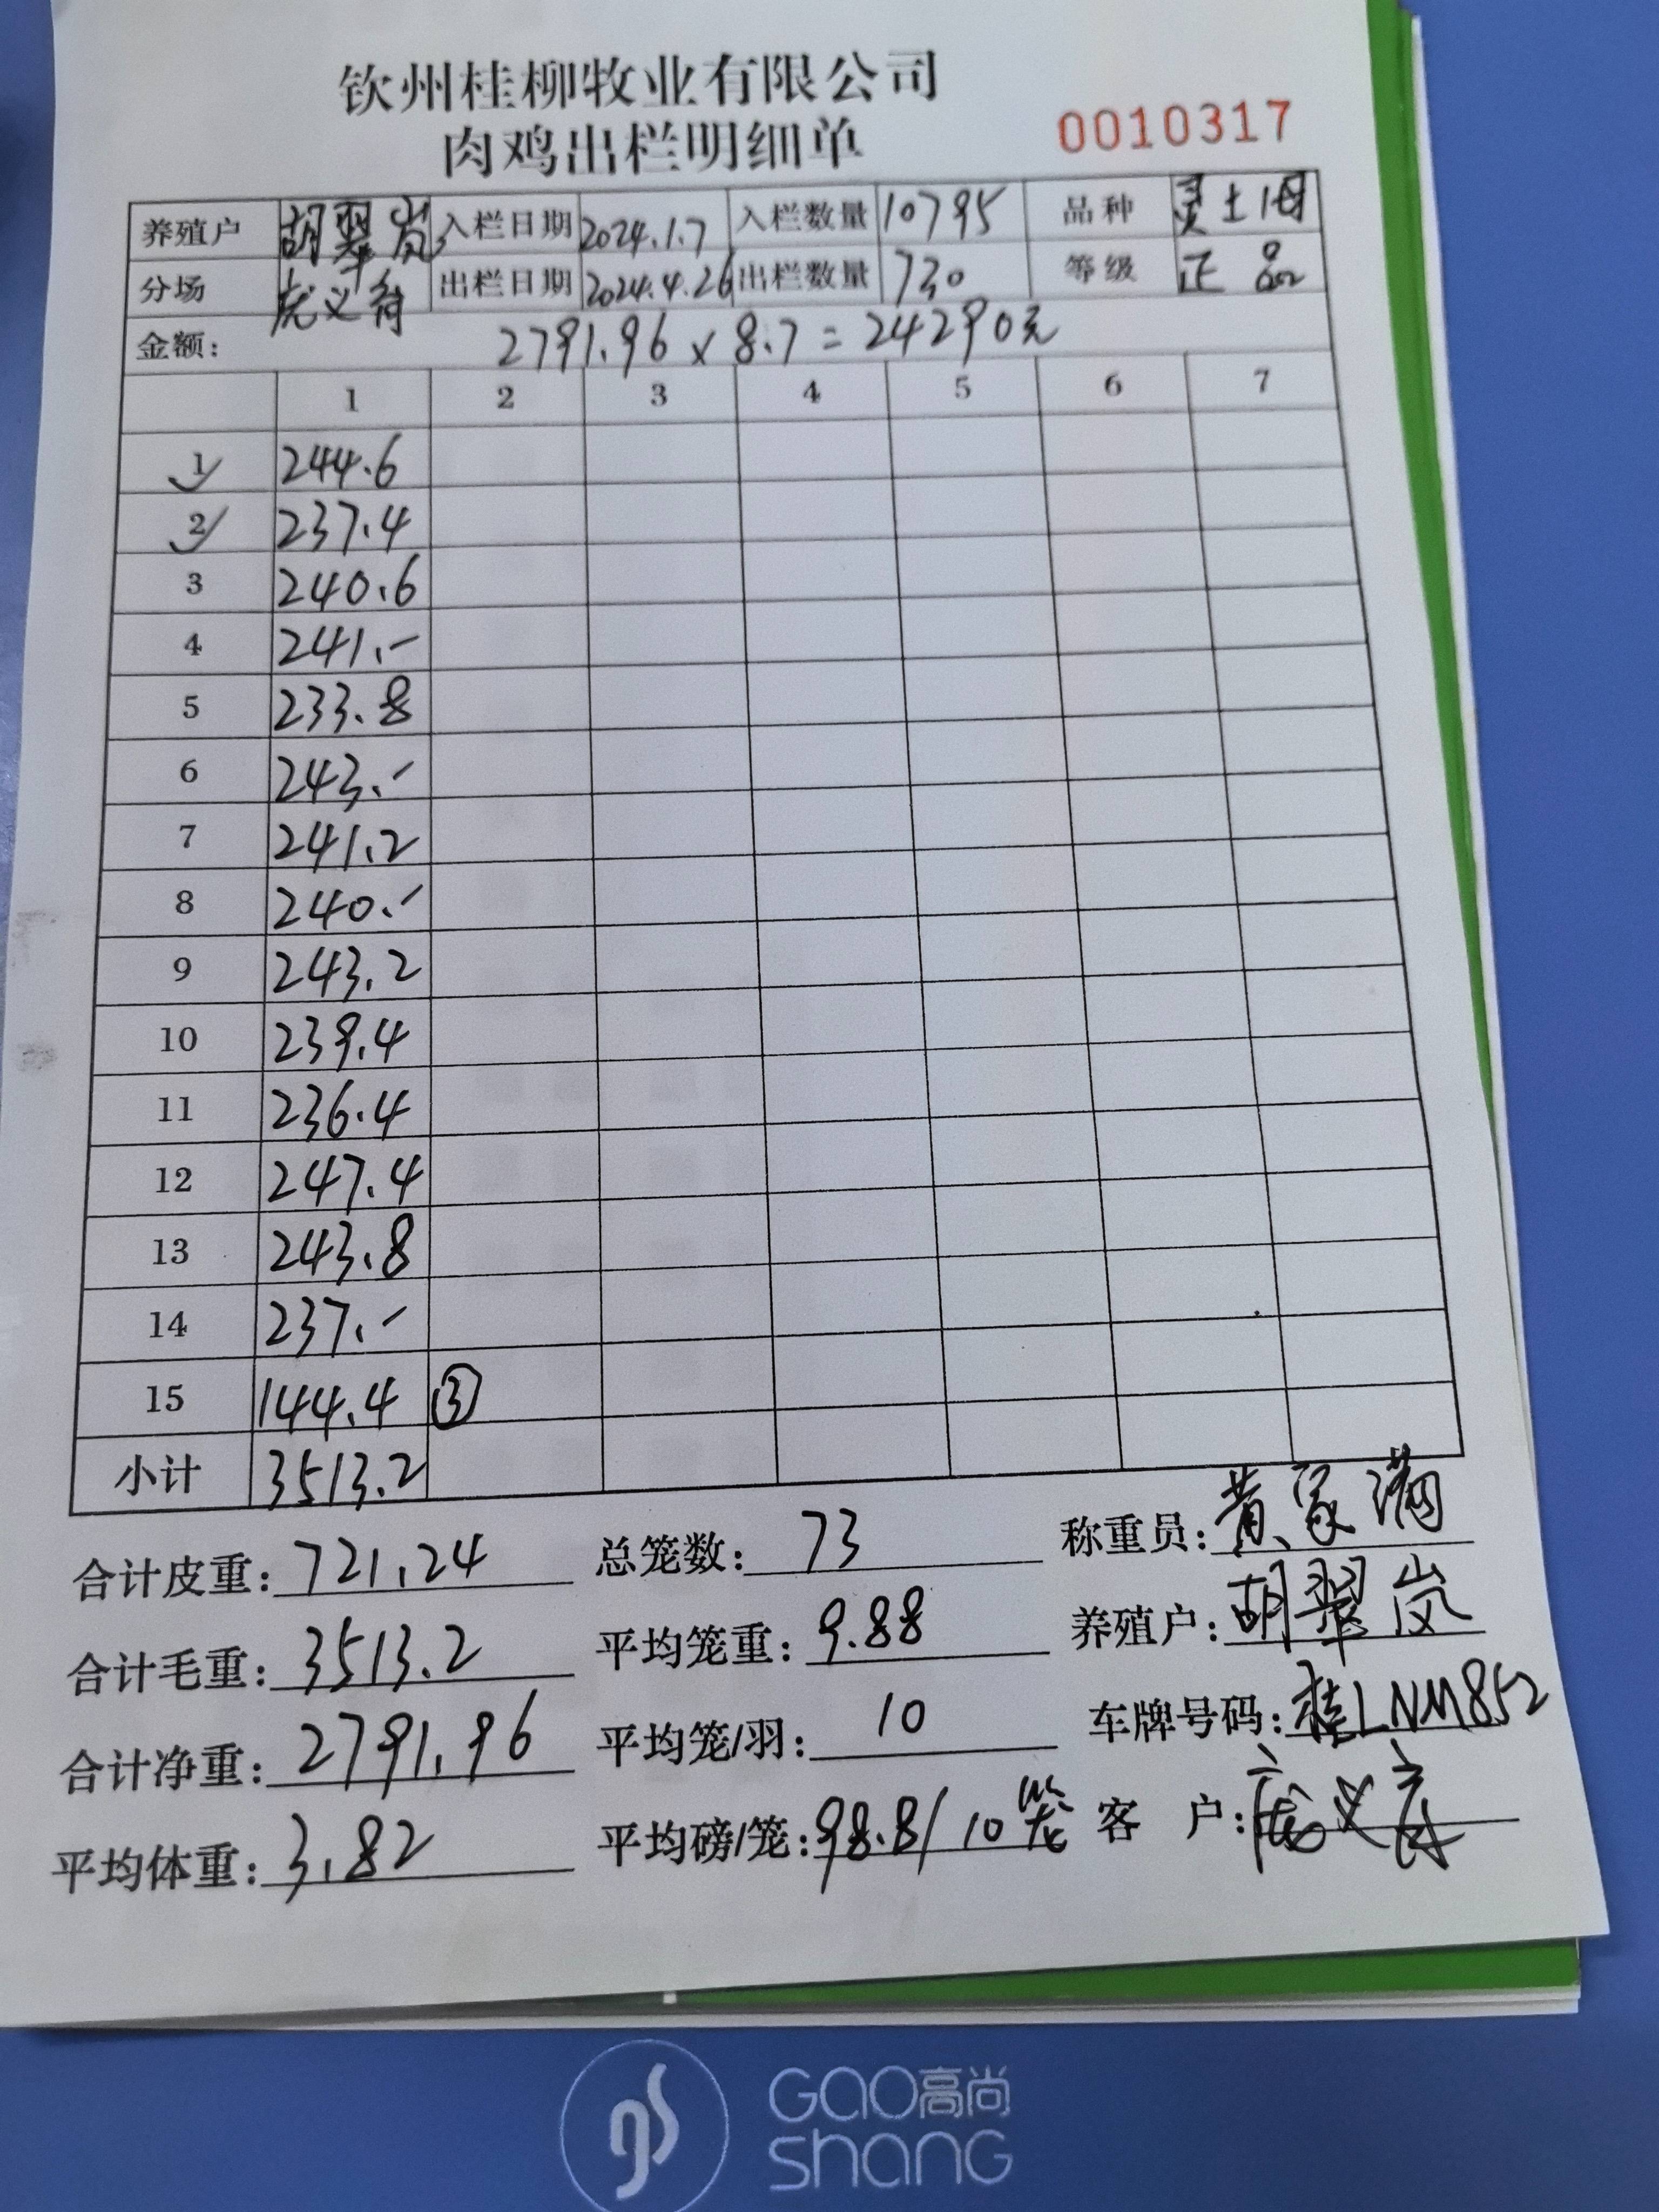 钦州桂柳牧业有限公司
肉鸡出栏明细单 0010317
养殖户 胡翠岚 入栏日期 2024.1.7 入栏数量 10795 品种 灵土母
分场 出栏日期 2024.4.26 出栏数量 730 等级 正品
金额: 2791.96 x 8.7 = 24290元
1 2 3 4 5 6 7
1 244.6
2 237.4
3 240.6
4 241.-
5 233.8
6 243.-
7 241.2
8 240.-
9 243.2
10 239.4
11 236.4
12 247.4
13 243.8
14 237.-
15 144.4 ③
小计 3513.2
合计皮重: 721.24 总笼数: 73 称重员: 黄家满
合计毛重: 3513.2 平均笼重: 9.88 养殖户: 胡翠岚
合计净重: 2791.96 平均笼/羽: 10 车牌号码: 桂LNM852
平均体重: 3.82 平均磅/笼: 98.8/10笼 客户:
GAO高尚
SHANG